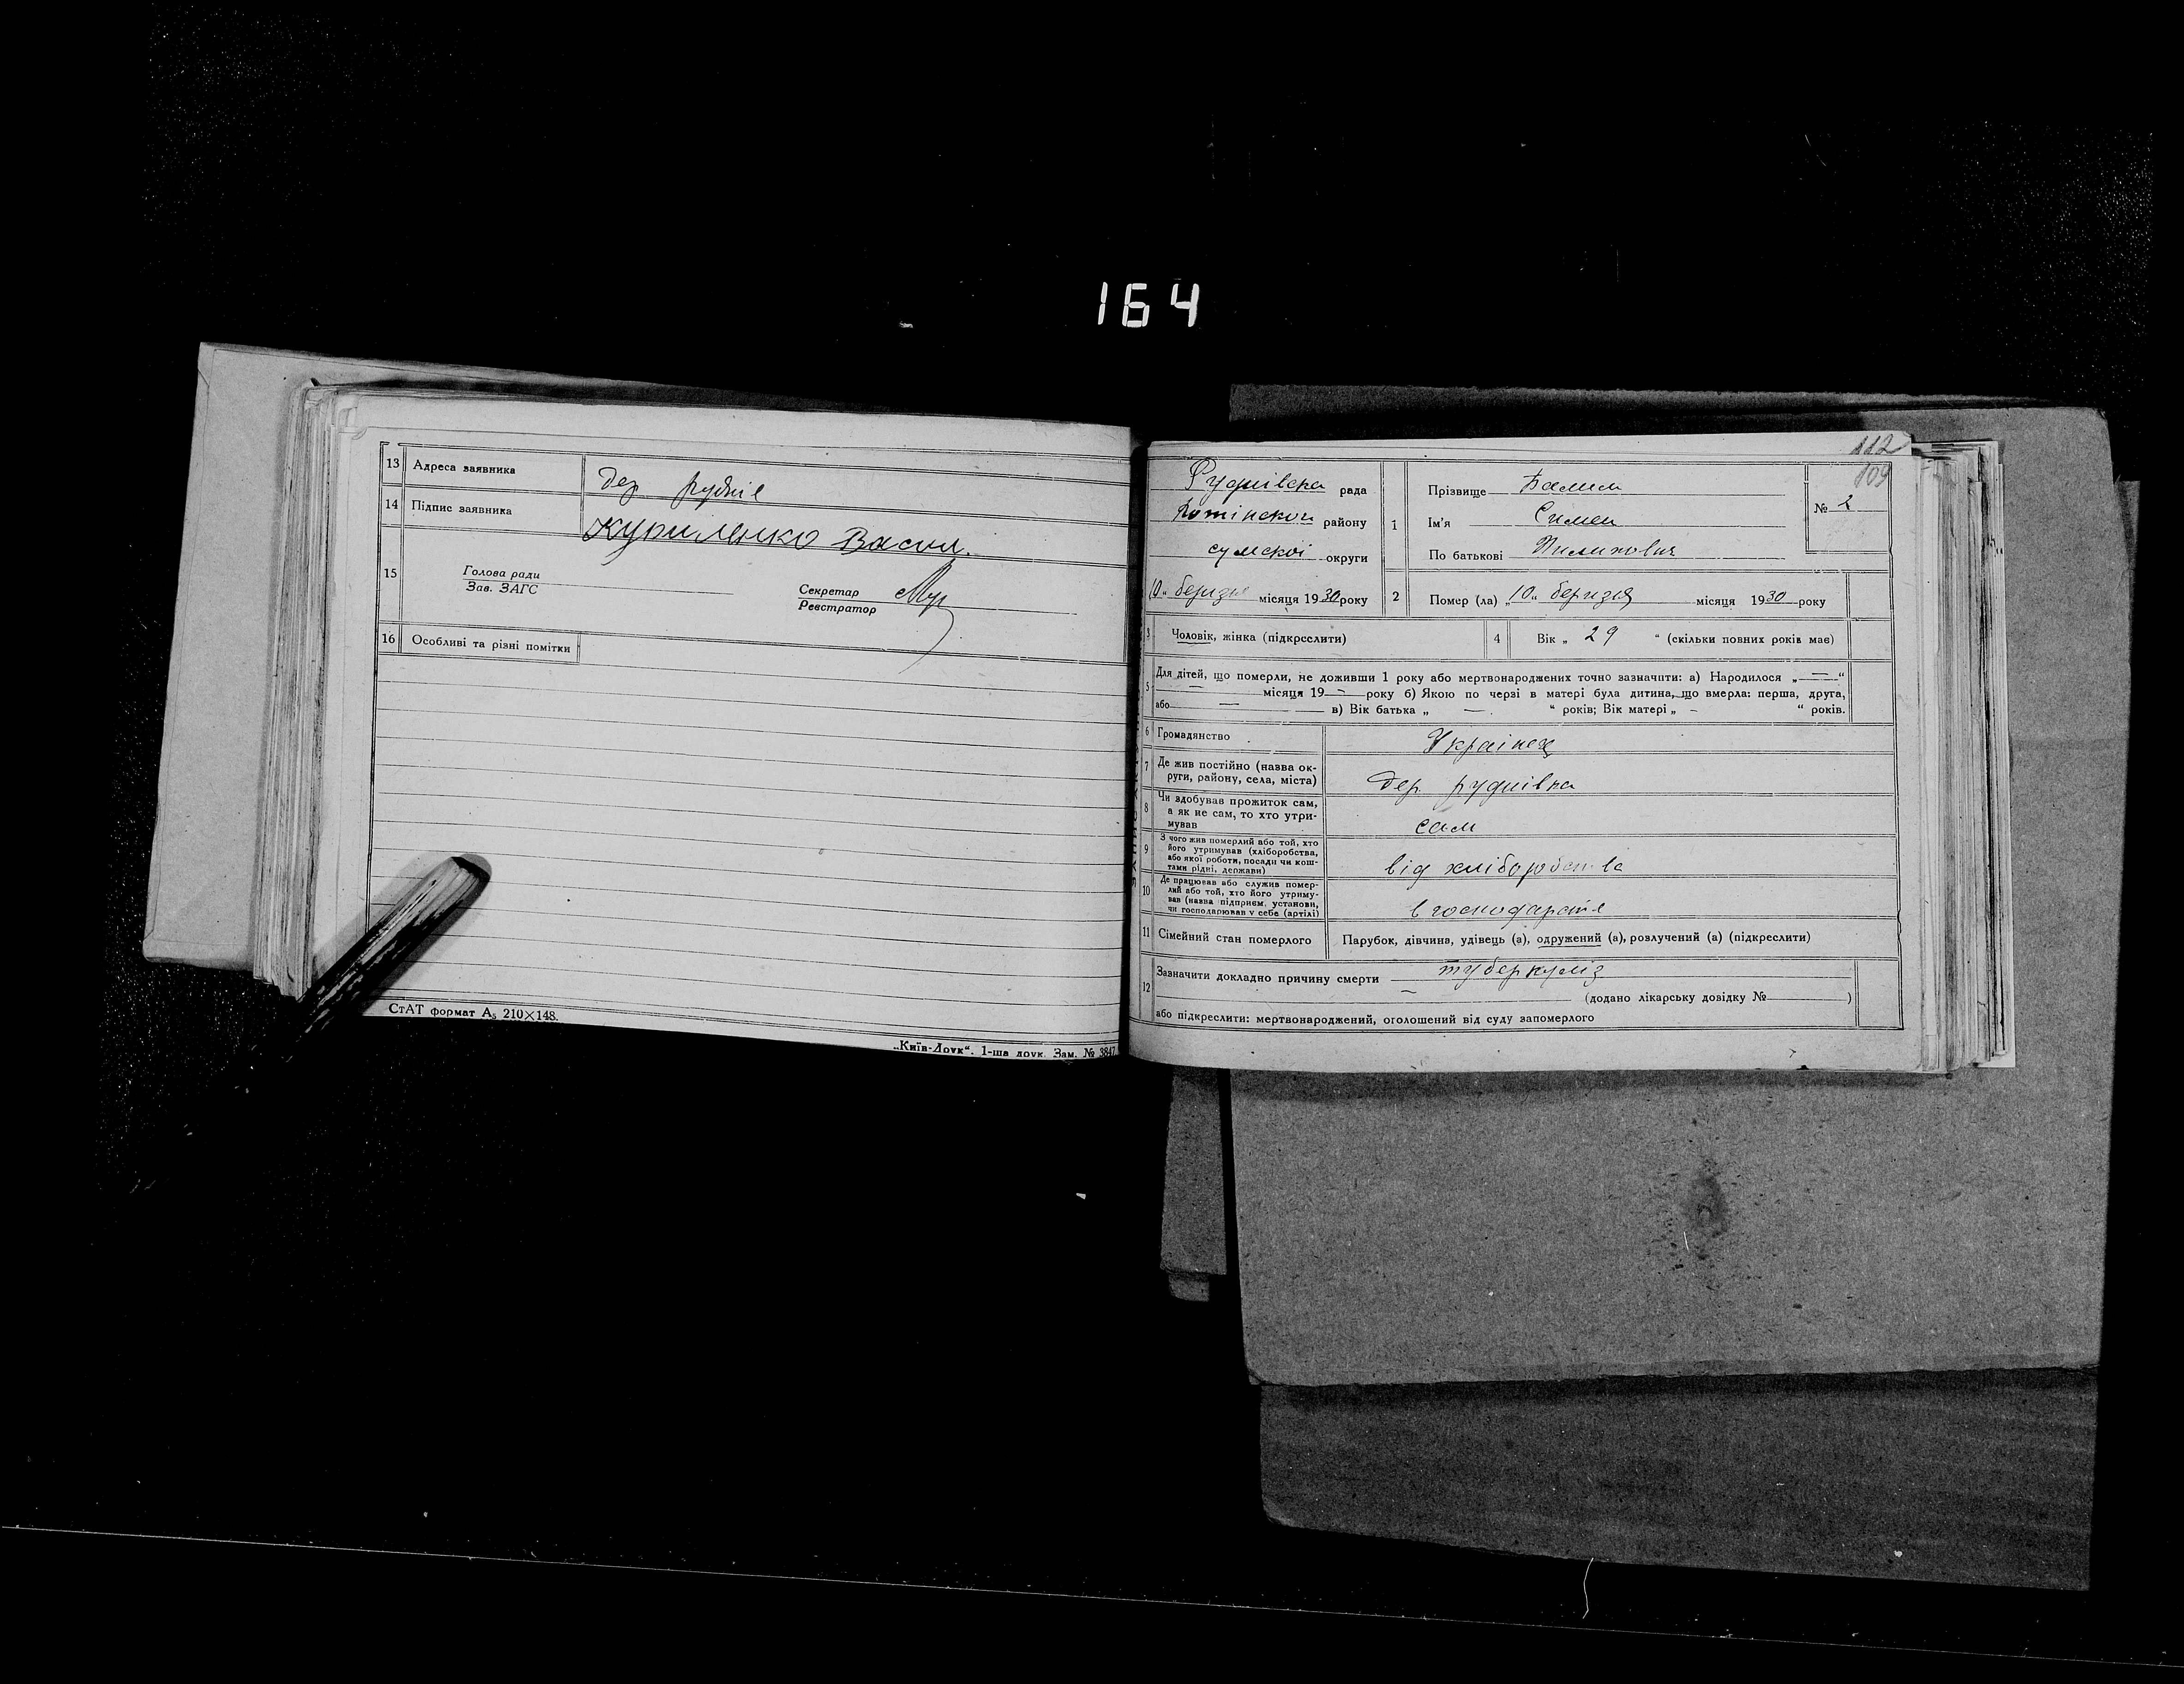 164
13 Адреса заявника дер рудвів
14 Підпис заявника Куриленко Васил.
15 Голова ради
Зав. ЗАГС
Секретар
Реєстратор
16 Особливі та різні помітки
СтАТ формат А₅ 210×148.
„Київ-Друк“. 1-ша друк. Зам. № 3847
112
109
Руднівска рада
району
сумской округи
10 „ березня місяця 1930 року
1 Прізвище
Ім'я Симен
По батькові Пилипович
№ 2
2 Помер (ла) „10“ березня місяця 1930 року
3 Чоловік, жінка (підкреслити)
4 Вік „ 29 “ (скільки повних років має)
5 Для дітей, що померли, не доживши 1 року або мертвонароджених точно зазначити: а) Народилося „ — “
— місяця 19 — року б) Якою по черзі в матері була дитина, що вмерла: перша, друга,
або — в) Вік батька „ — “ років; Вік матері „ - “ років.
6 Громадянство Українец
7 Де жив постійно (назва ок-
руги, району, села, міста) дер руднівка
8 Чи здобував прожиток сам,
а як не сам, то хто утри-
мував сам
9 З чого жив померлий або той, хто
його утримував (хліборобства,
або якої роботи, посади чи кош-
тами рідні, держави) від хліборобства
10 Де працював або служив помер-
лий або той, хто його утриму-
вав (назва підприєм. установи,
чи господарював у себе (артілі) в
11 Сімейний стан померлого Парубок, дівчина, удівець (а), одружений (а), розлучений (а) (підкреслити)
12 Зазначити докладно причину смерти туберкуліз
— (додано лікарську довідку № )
або підкреслити: мертвонароджений, оголошений від суду запомерлого